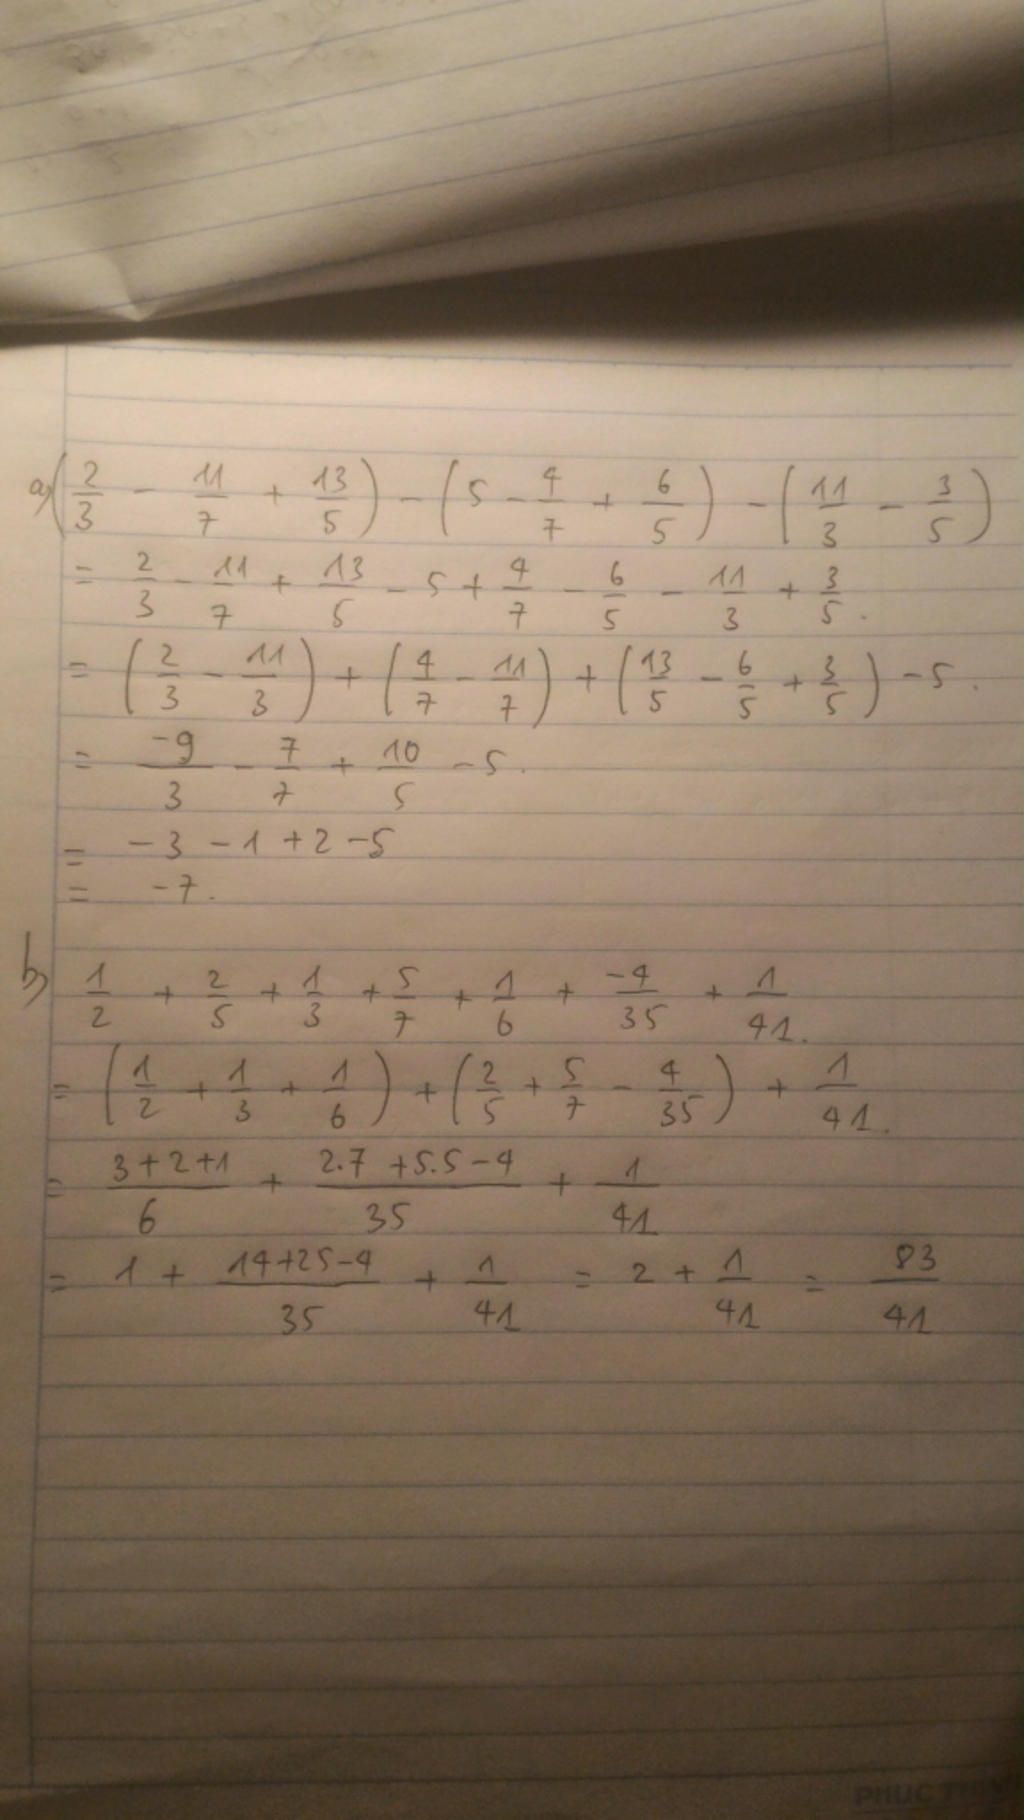 a) (2/3 - 11/7 + 13/5) - (5 - 4/7 + 6/5) - (11/3 - 3/5)
= 2/3 - 11/7 + 13/5 - 5 + 4/7 - 6/5 - 11/3 + 3/5.
= (2/3 - 11/3) + (4/7 - 11/7) + (13/5 - 6/5 + 3/5) - 5.
= -9/3 - 7/7 + 10/5 - 5.
= -3 - 1 + 2 - 5
= -7.
b) 1/2 + 2/5 + 1/3 + 5/7 + 1/6 + -4/35 + 1/41.
= (1/2 + 1/3 + 1/6) + (2/5 + 5/7 - 4/35) + 1/41.
= 3+2+1/6 + 2.7+5.5-4/35 + 1/41
= 1 + 14+25-4/35 + 1/41 = 2 + 1/41 = 83/41